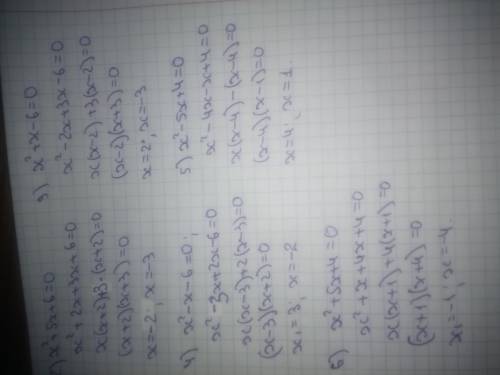 2) x²+5x+6=0
x²+2x+3x+6=0
x(x+2)+3·(x+2)=0
(x+2)(x+3)=0
x=-2; x=-3
3) x²+x-6=0
x²-2x+3x-6=0
x(x-2)+3(x-2)=0
(x-2)(x+3)=0
x=2; x=-3
4) x²-x-6=0;
x²-3x+2x-6=0
x(x-3)+2(x-3)=0
(x-3)(x+2)=0
x₁=3; x=-2
5) x²-5x+4=0
x²-4x-x+4=0
x(x-4)-(x-4)=0
(x-4)(x-1)=0
x=4; x=1.
6) x²+5x+4=0
x²+x+4x+4=0
x(x+1)+4(x+1)=0
(x+1)(x+4)=0
x₁=-1; x=-4.